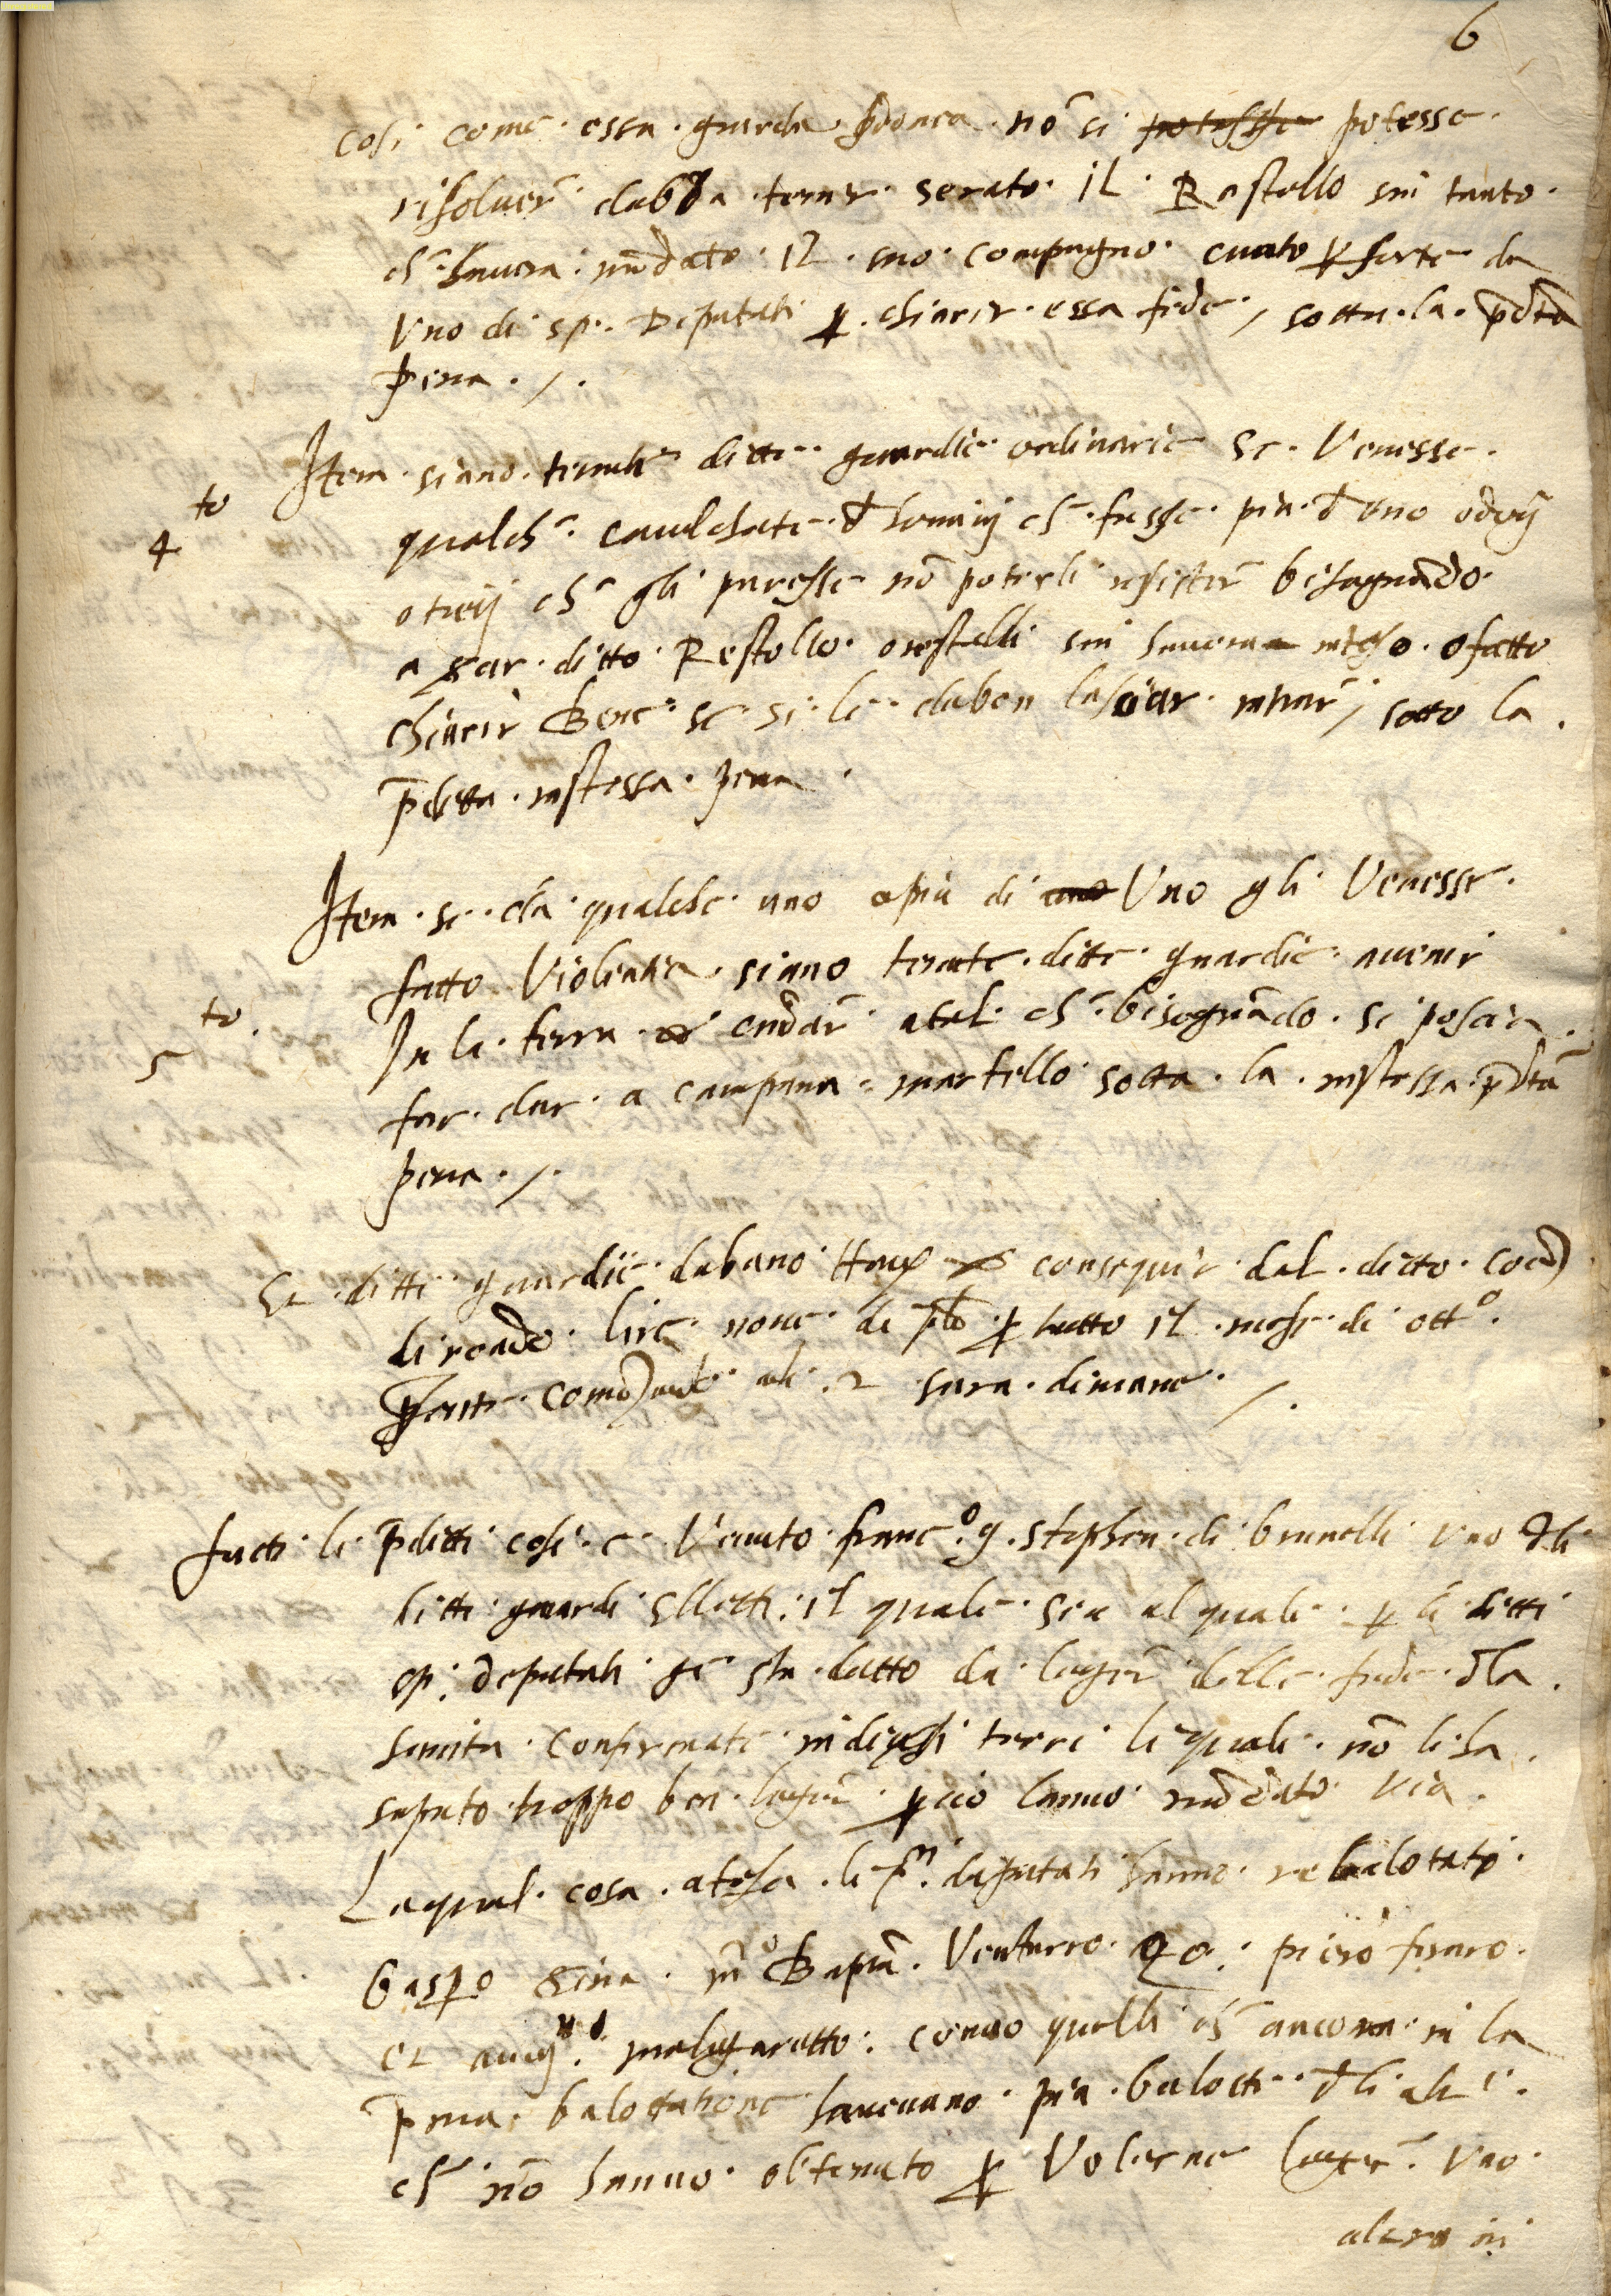 6
cosi come essa guarda p̄donca nō si potesse potesse
risoluer̄ dabia tener serato il Rastello sin tanto
ch̄ hauera mādato il suo compagno cuato ꝑ sorte da
Vno di sp. Deputati ꝑ chiarir essa fede / sotta la p̄dta
pena ./.
Item siano tenute ditte guardie ordinarie se Venesse
4 to
qualch̄ caualchate d homini ch̄ fusse piu d uno o doij
o treij ch̄ gli paresse nō poterli resister̄ bisognādo
a sarar ditto Restello o restelli sin haueran inteso o fatto
chiarir Bene se si le dabon lassiar intrar̄ / sotto la
p̄ditta instessa pena .
Item se da qualche uno o piu di uno Vno gli Venesse
fatto Violentia siano tenute ditte guardie auenir
5 to.
In la terra et andar̄ atal ch̄ bisognādo si possia
far dar a campana martello sotta la instessa p̄dta
pena ./.
Et ditti guardie dabano conseguir dal ditto
di lire noue di ꝑ tutto il mese di ott.o
comēzante ali 2 sara dimane ./.
facti le p̄ditti cose e Venuto franc.o q. Stephen di brunelli Vno d̄li
ditti guardi elletti il quale sia al quale ꝑ li ditti
sp. deputati ge sta datto da leger̄ delle fede d̄la
sanita confirmate in diuersi terre le quale nō li ha
saputo troppo ben leger̄ ꝑcio lanno mādato via
Laqual cosa atesa li deputati hanno rebalotato
Gaspo m.o Bapta. Venturro piero feraro
et malgaretto: como quelli ch̄ ancora in la
p̄ma balotatione haueuano piu balotte d̄li altri
ch̄ nō hanno obtenuto ꝑ Volerne leger̄ Vno
altro in